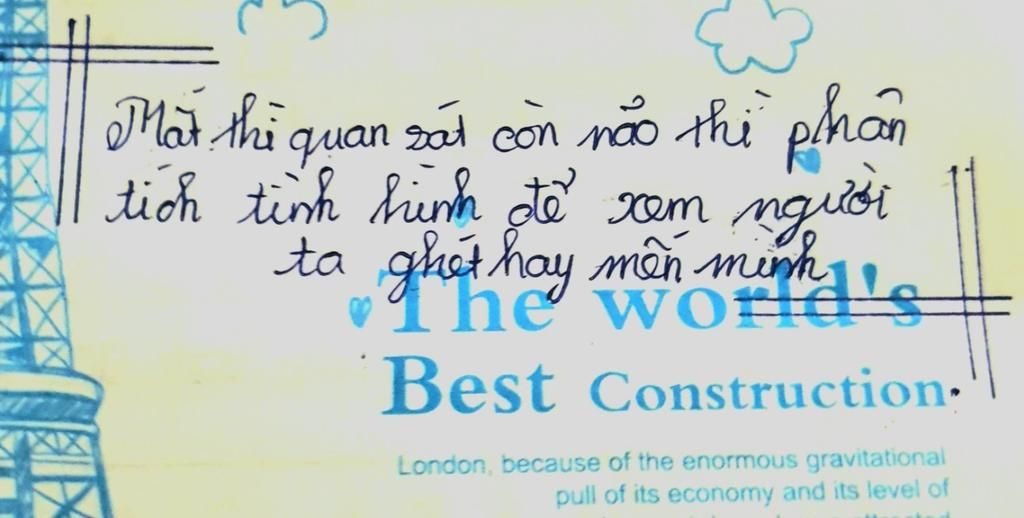 Mắt thì quan sát còn não thì phân
tích tình hình để xem người
ta ghét hay mến mình
The world's
Best Construction.
London, because of the enormous gravitational
pull of its economy and its level of